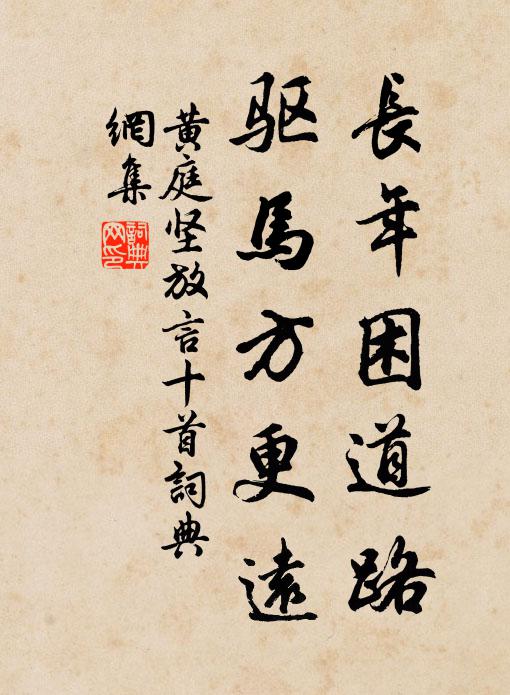 長年困道路
驱馬方更遠
黄庭坚放言十首詞典
網集
詞典
网印